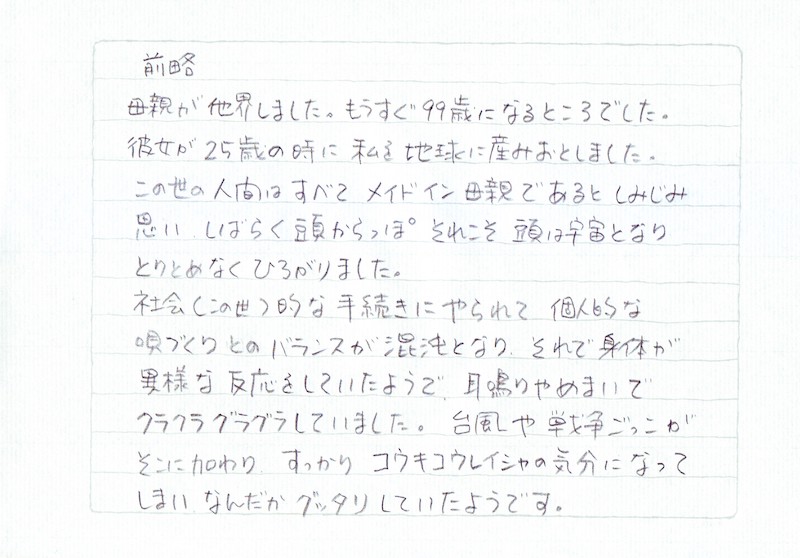 前略
母親が他界しました。もうすぐ99歳になるところでした。
彼女が25歳の時に私を地球に産みおとしました。
この世の人間はすべてメイドイン母親であるとしみじみ
思い、しばらく頭からっぽ。それこそ頭は宇宙となり
とりとめなくひろがりました。
社会(この世)的な手続きにやられて個人的な
唄づくりとのバランスが混沌となり、それで身体が
異様な反応をしていたようで、耳鳴りやめまいで
クラクラグラグラしていました。台風や戦争ごっこが
そこに加わり、すっかりコウキコウレイシャの気分になって
しまい、なんだかグッタリしていたようです。